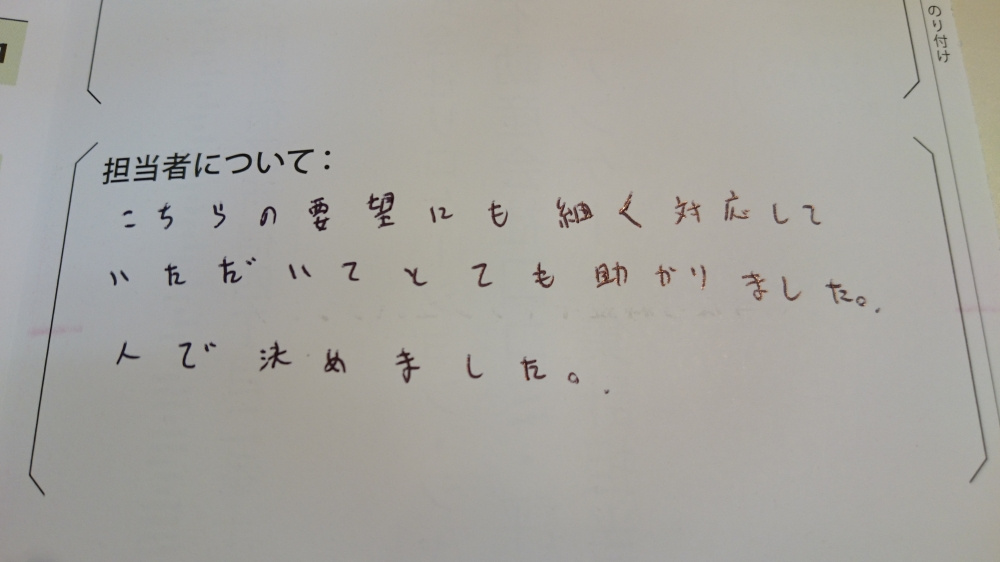 のり付け
担当者について：
こちらの要望にも細く対応して
いただいてとても助かりました。
人で決めました。